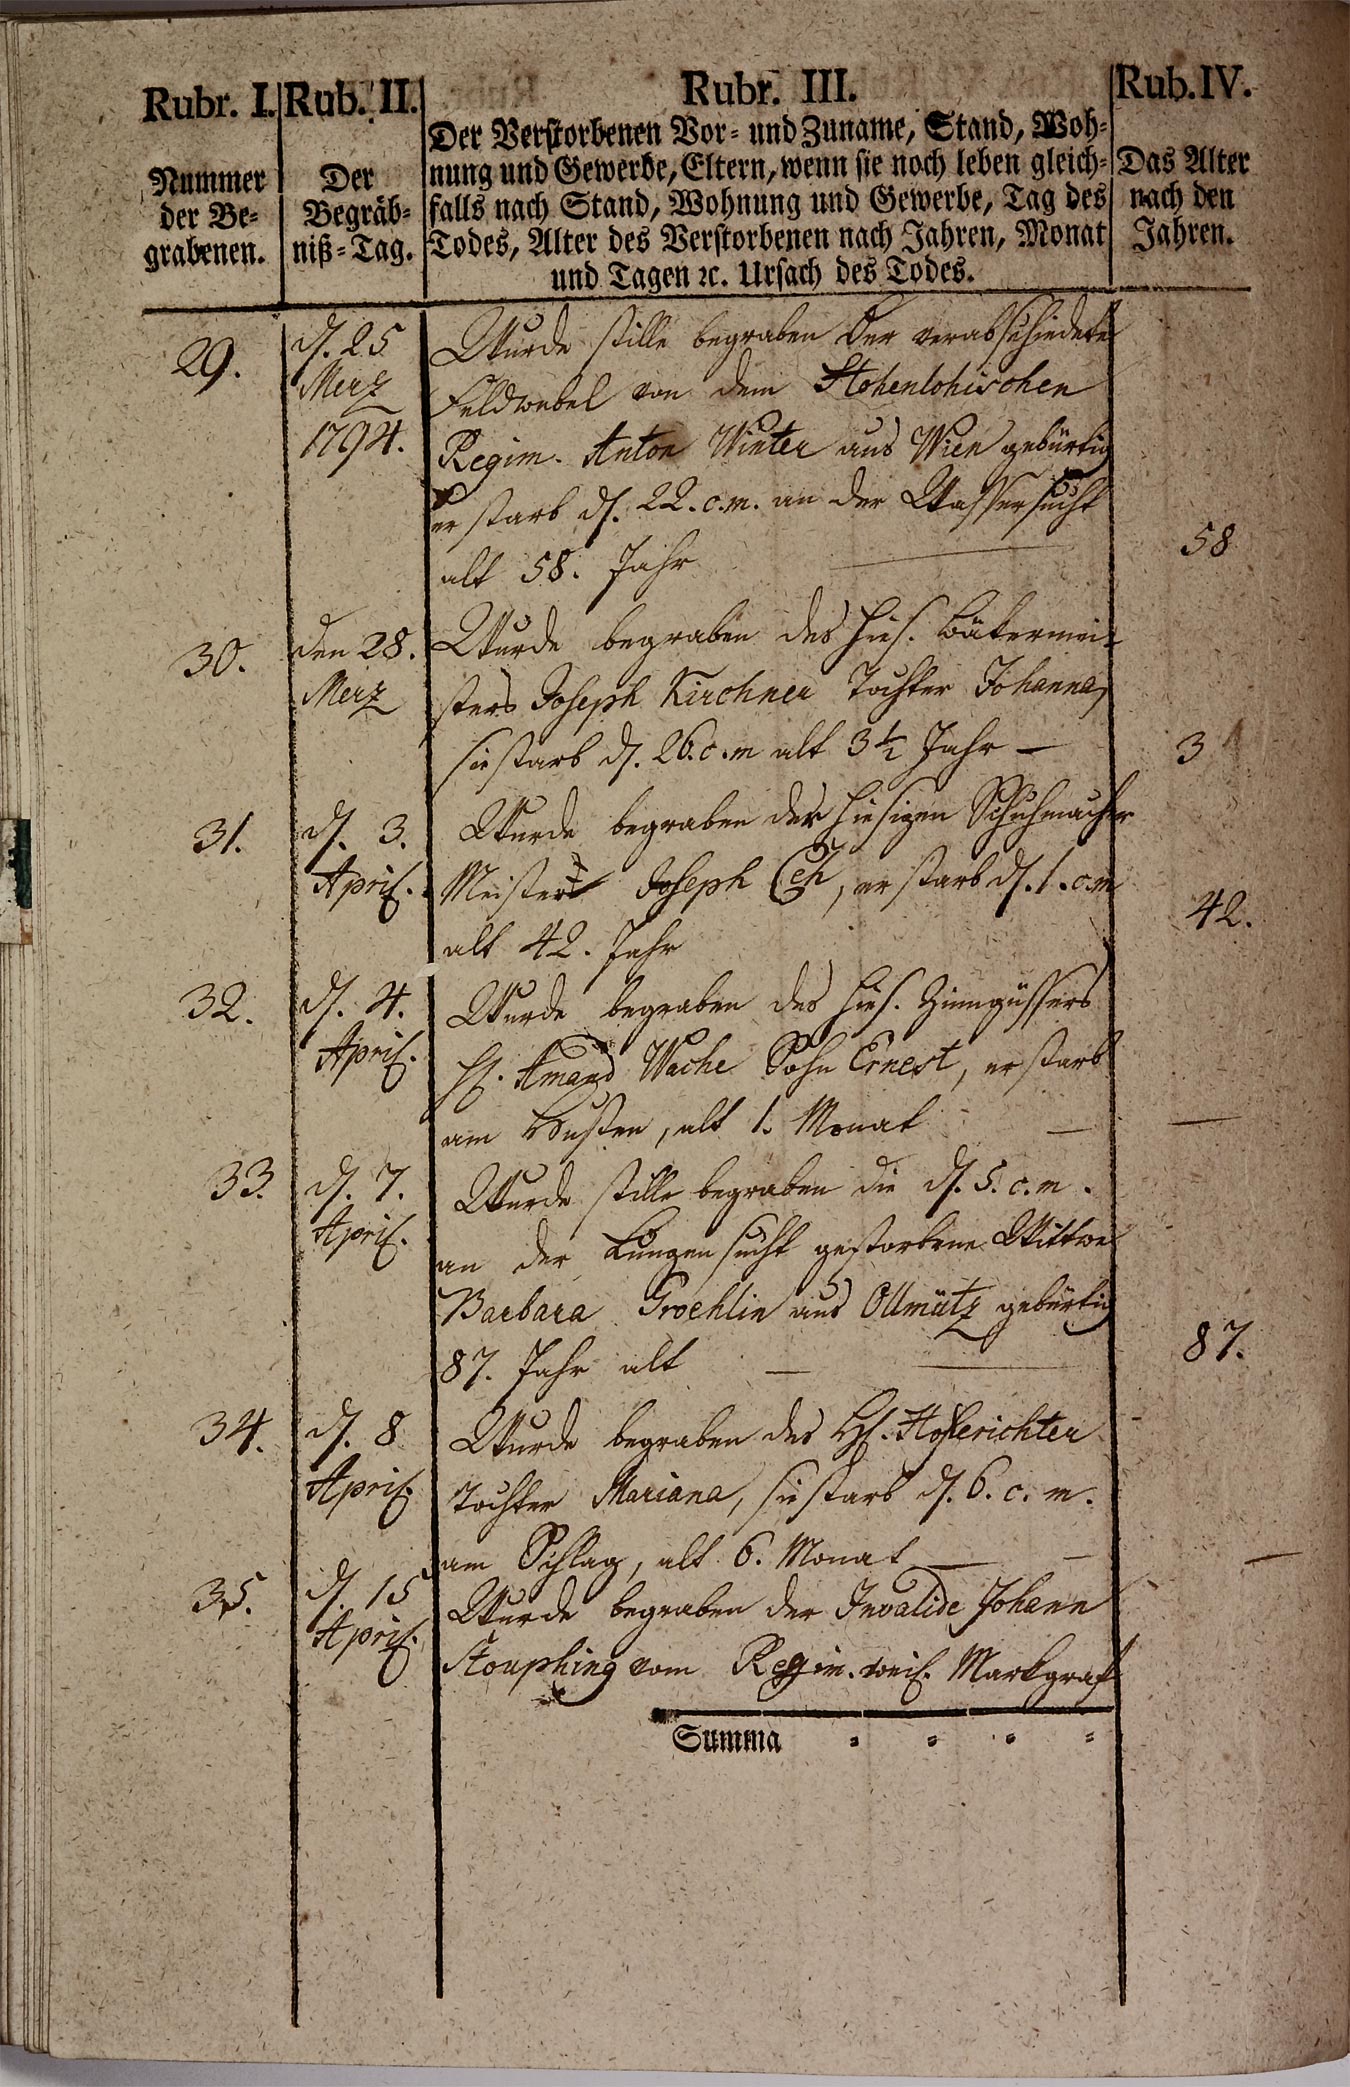 Rubr. I. Rub. II. Rubr. III. Rub. IV.
Nummer der Be=
grabenen.
Der
Begräb=
niß=Tag.
Der Verstorbenen Vor= und Zuname, Stand, Woh=
nung und Gewerbe, Eltern, wenn sie noch leben gleich=
falls nach Stand, Wohnung und Gewerbe, Tag des
Todes, Alter des Verstorbenen nach Jahren, Monat
und Tagen ꝛc. Ursach des Todes.
Das Alter
nach den
Jahren.
29.
d. 25
Merz
1794.
Wurde stille begraben der verabschiedete
Feldwebel von dem Hohenlohischen
Regim. Anton Winter aus Wien gebürtig
er starb d. 22. c. m. an der Wassersucht
alt 58. Jahr
58
30.
den 28.
Merz
Wurde begraben des hies. Bäkermei=
sters Joseph Kirchner Tochter Johanna,
sie starb d. 26. c. m alt 3½ Jahr —
3
31.
d. 3.
April.
Wurde begraben der hiesigen Schuhmacher
Meister Joseph Čeh, er starb d. 1. c. m
alt 42. Jahr
42.
32.
d. 4.
April.
Wurde begraben des hies. Zinngüssers
H. Amand Wache Sohn Ernest, er starb
am Husten, alt 1. Monat —
—
33.
d. 7.
April.
Wurde stille begraben die d. 5. c. m.
an der Lungensucht gestorbene Wittwe
Barbara aus Ollmütz gebürtig
87. Jahr alt —
87.
34.
d. 8
April.
Wurde begraben des H. Hoferichter
Tochter Mariana, sie starb d. 6. c. m.
am Schlag, alt 6. Monat —
—
35.
d. 15
April.
Wurde begraben der Invalide Johann
vom Regim. weil. Markgraf
Summa = = = =